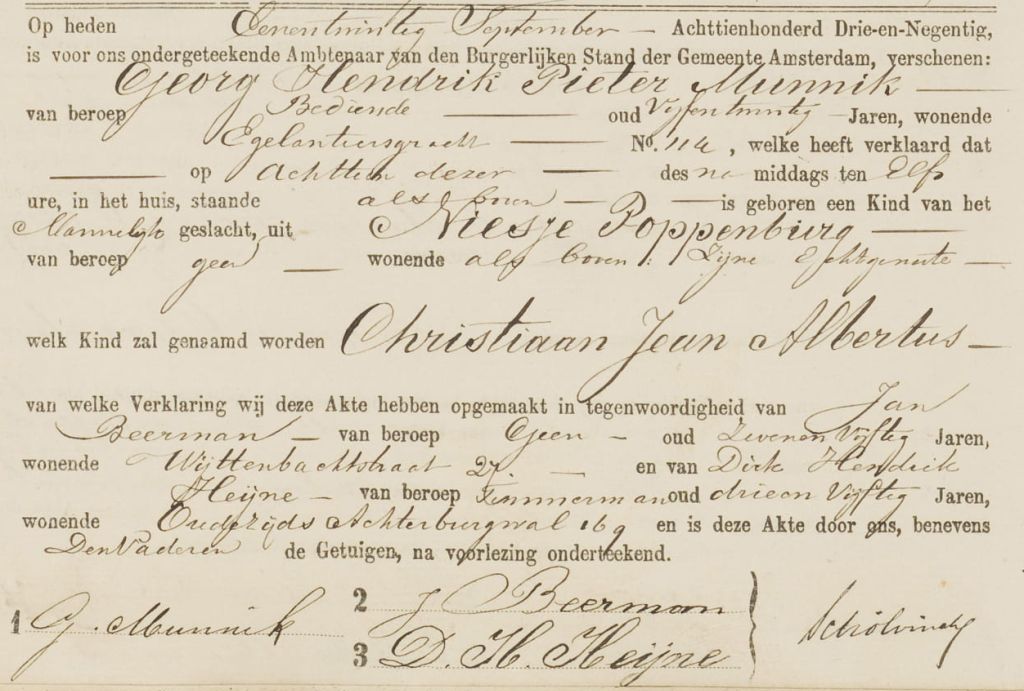 Op heden Eenentwintig September Achttienhonderd Drie-en-Negentig,
is voor ons ondergeteekende Ambtenaar van den Burgerlijken Stand der Gemeente Amsterdam, verschenen:
Georg Hendrik Pieter Munnik
van beroep Bediende oud Vijfentwintig Jaren, wonende
Egelantiersgracht No. 114, welke heeft verklaard dat
op Achttien dezer des na middags ten Elf
ure, in het huis, staande als boven is geboren een Kind van het
Mannelijk geslacht, uit Niesje Poppenburg
van beroep geen wonende als boven: Zijne Echtgenoote
welk Kind zal genaamd worden Christiaan Jean Albertus
van welke Verklaring wij deze Akte hebben opgemaakt in tegenwoordigheid van Jan
Beerman van beroep Geen oud Zevenen Vijftig Jaren,
wonende Wijttenbachstraat 27. en van Dirk Hendrik
Heijne van beroep Timmerman oud drieen Vijftig Jaren,
wonende Oudezijds Achterburgwal 169 en is deze Akte door ons, benevens
Den Vader en de Getuigen, na voorlezing onderteekend.
1 G. Munnik
2 J Beerman
3 D. H. Heijne